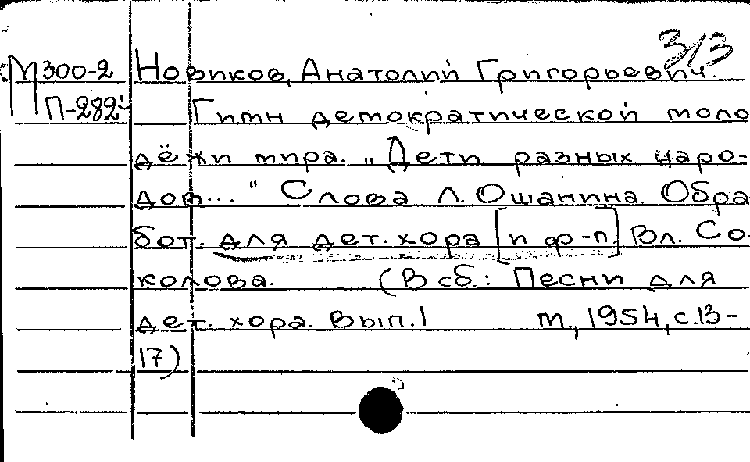 3/3
М300-2 Новиков, Анатолий Григорьевич.
П-282 Гимн демократической моло
дёжи мира. „Дети разных наро-
дов..." Слова Л. Ошанина. Обра
бот. для дет. хора [и ф-п.] Вл. Со-
колова. (В сб.: Песни для
дет. хора. Вып. 1 М, 1954, с. 13-
17)